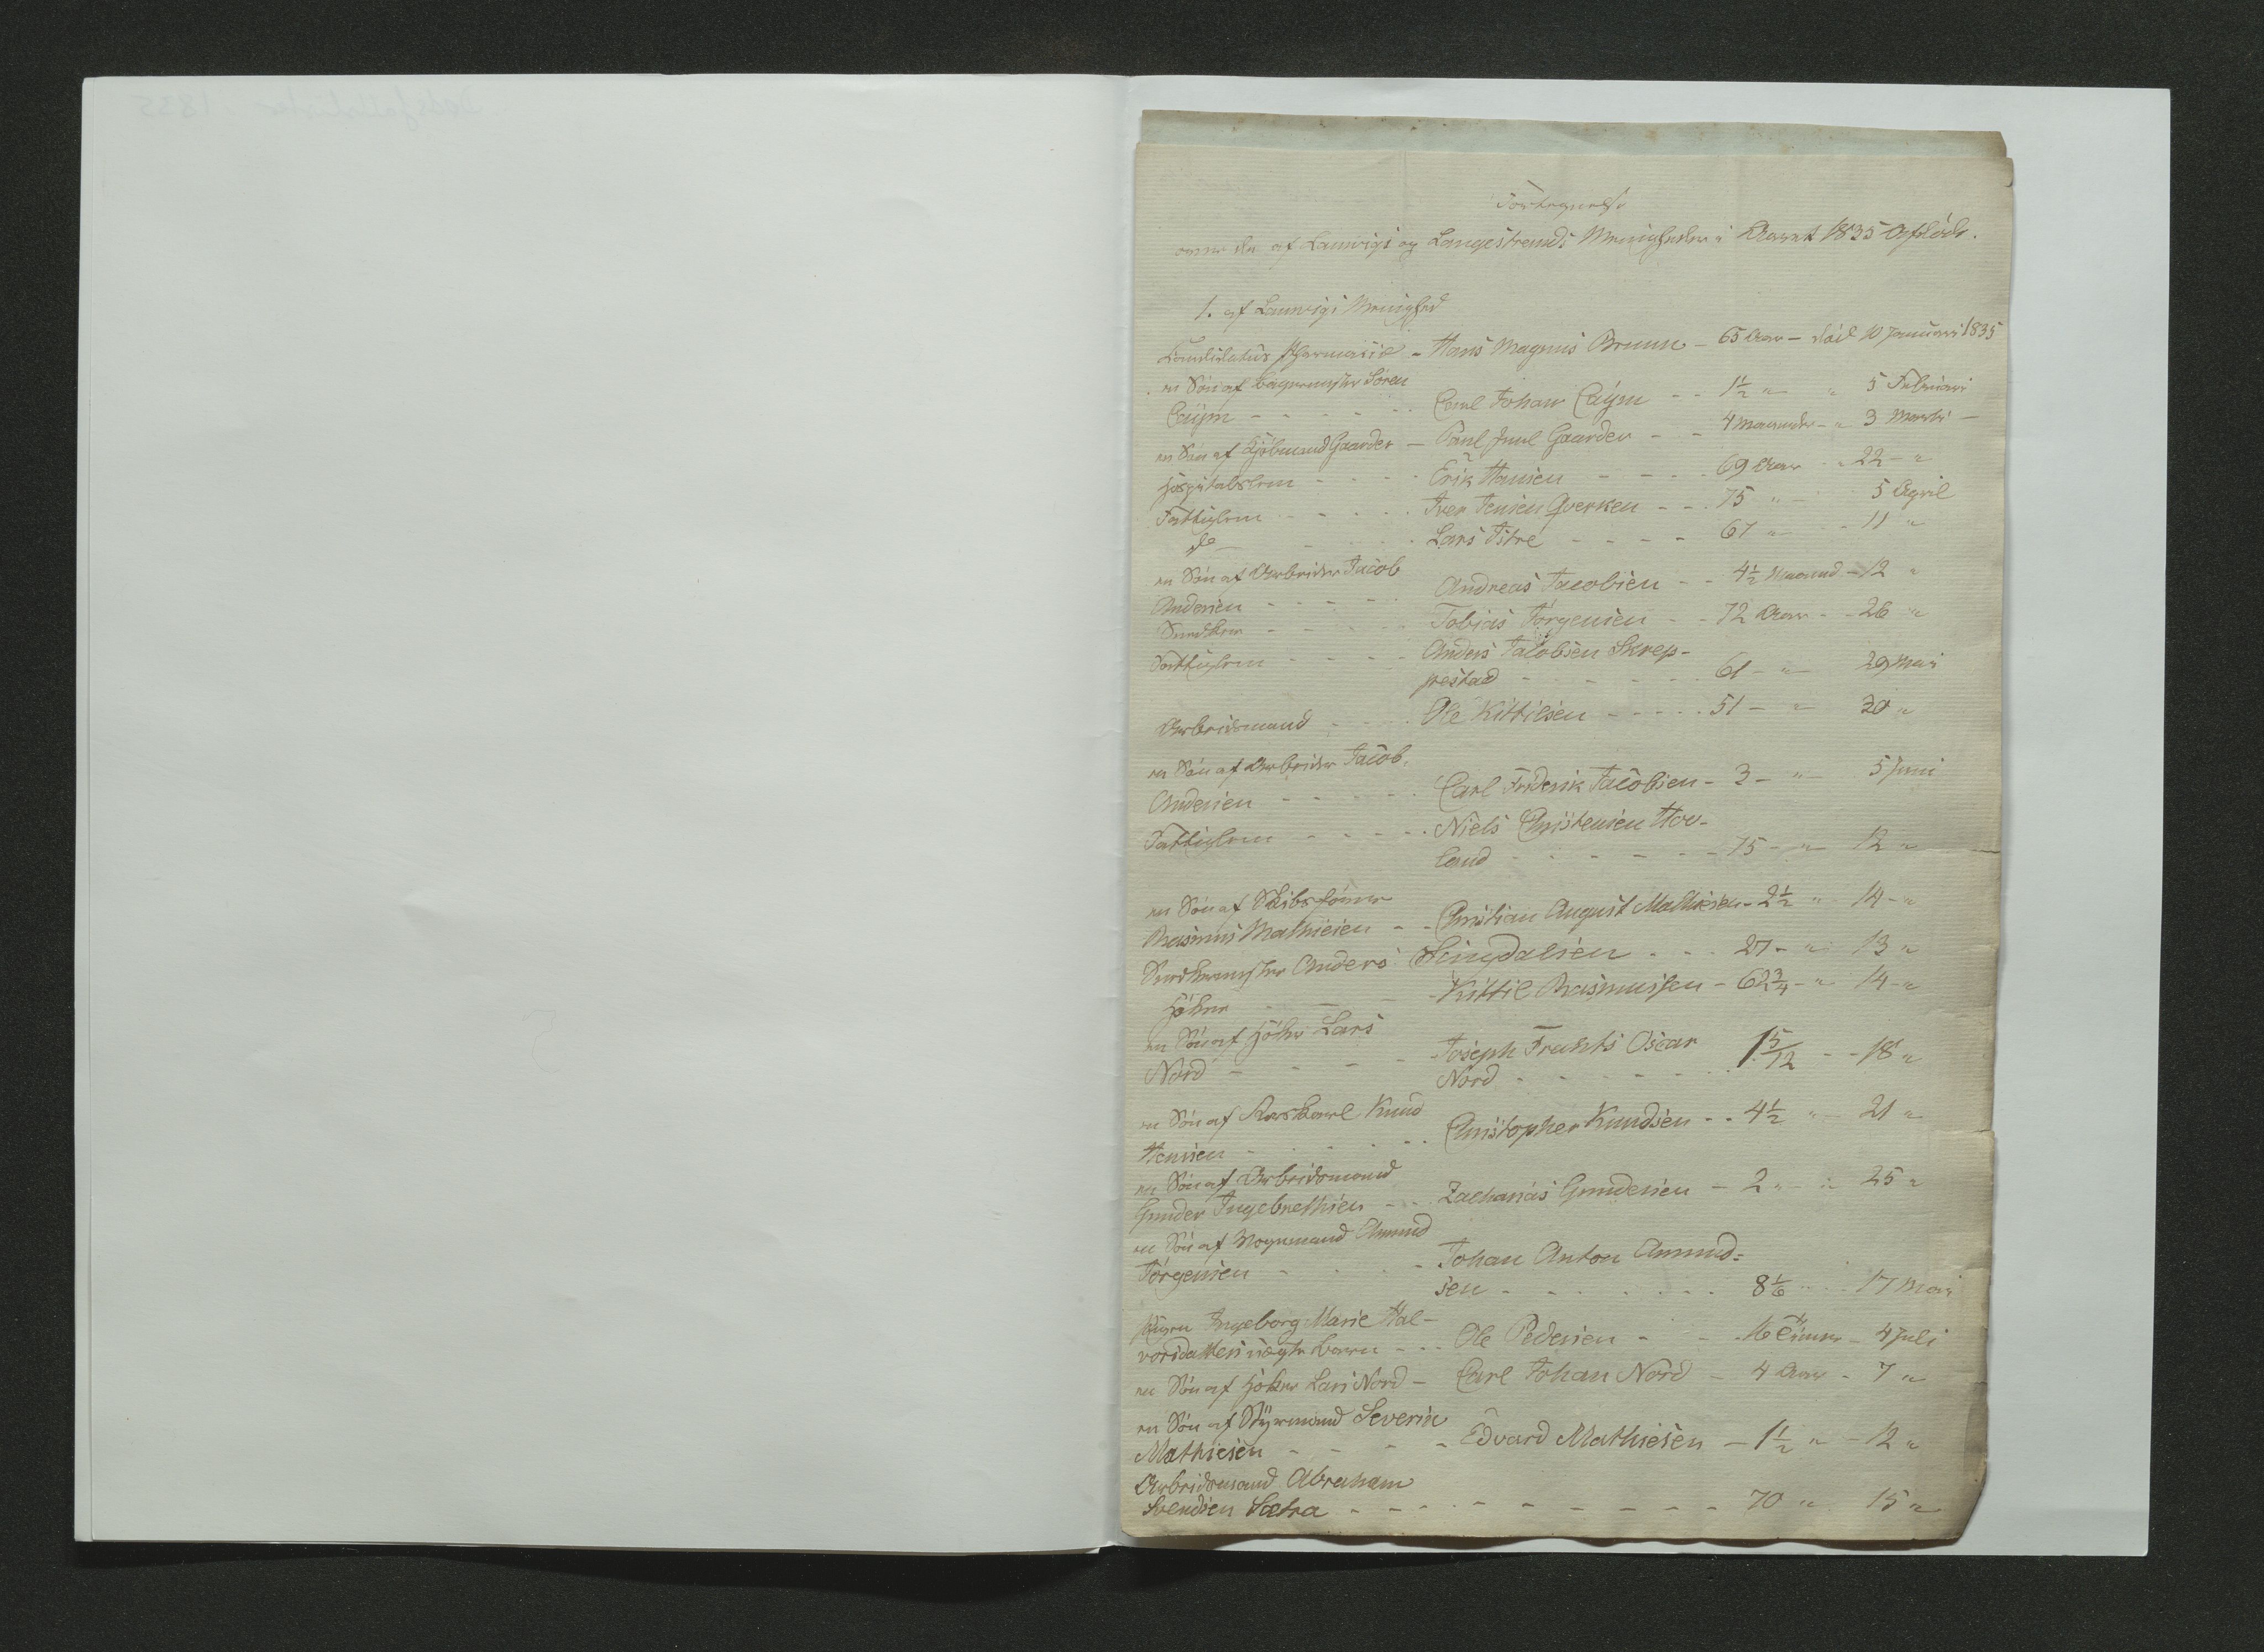 Fortegnelse
over de af Laurvigs og Langestrands Menigheder i Aaret 1835 Afdöde.
1. af Laurvigs Menighed
Candidatus Pharmaciæ - Hans Magnus Bruun - 65 Aar - död 10 Januari 1835
en Sön af Bagermester Sören
Caijm - - - - - Carl Johan Caijm - - 1½ " " 5 Februari
en Sön af Kjöbmand Gaarder - Paul Juul Gaarder - - 4 Maaneder - " 3 Martii -
Hospitalslem - - - - Erik Hansen - - - - 69 Aar - - 22 - "
Fattiglem - - - - Iver Jensen Qverken - - - 75 " - 5 April
do - - - Lars Titre - - - - 67 " - - 11 "
en Sön af Arbeider Jacob
Andersen - - - - - Andreas Jacobsen - - 4½ Maaned - 12 "
Snedker - - - - - Tobias Jörgensen - - 72 Aar - - 26 "
Fattiglem - - - - Anders Jacobsen Skrep-
pestad - - - - - - 61 - " - 29 Mai
Arbeidsmand - - - - Ole Kittilsen - - - - - 51 - " 30 "
en Sön af Arbeider Jacob
Andersen - - - - - Carl Friderik Jacobsen - 3 - " - 5 Juni
Fattiglem - - - - - Niels Christensen Hov-
land - - - - - - 75 - " - 12 "
en Sön af Skibstömmer
Rasmus Mathiesen - - Christian August Mathiesen - 2½ " - 14 - "
Snedkermester Anders Singdalsen - - - 27 - " - 13 "
Höker - - - Kittil Rasmussen - 62¾ - " 14 - "
en Sön af Höker Lars
Nord - - - - - Joseph Frants Oscar
Nord - - - - - 1 5/12 - - 18 "
en Sön af Knud
Hansen - - - - - Christopher Knudsen - - 4½ " - 21 "
en Sön af Arbeidsmand
Gunder Ingebrethsen - - - Zacharias Gundersen - 2 " - " 25 "
en Sön af Vognmand Amund
Jörgensen - - - - Johan Anton Amund-
sen - - - - - - - 8 1/6 - - - 17 Mai
Pigen Ingeborg Marie Hal-
vorsdatters uægte Barn - - - Ole Pedersen - - - 16 Timer - 4 Juli
en Sön af Höker Lars Nord - Carl Johan Nord - 4 Aar - 7 "
en Sön af Styrmand Severin
Mathiesen - - - - Edvard Mathiesen - 1½ " - 12 "
Arbeidsmand Abraham
Svendsen Sætra - - - - - - - - - - 70 " 15 "